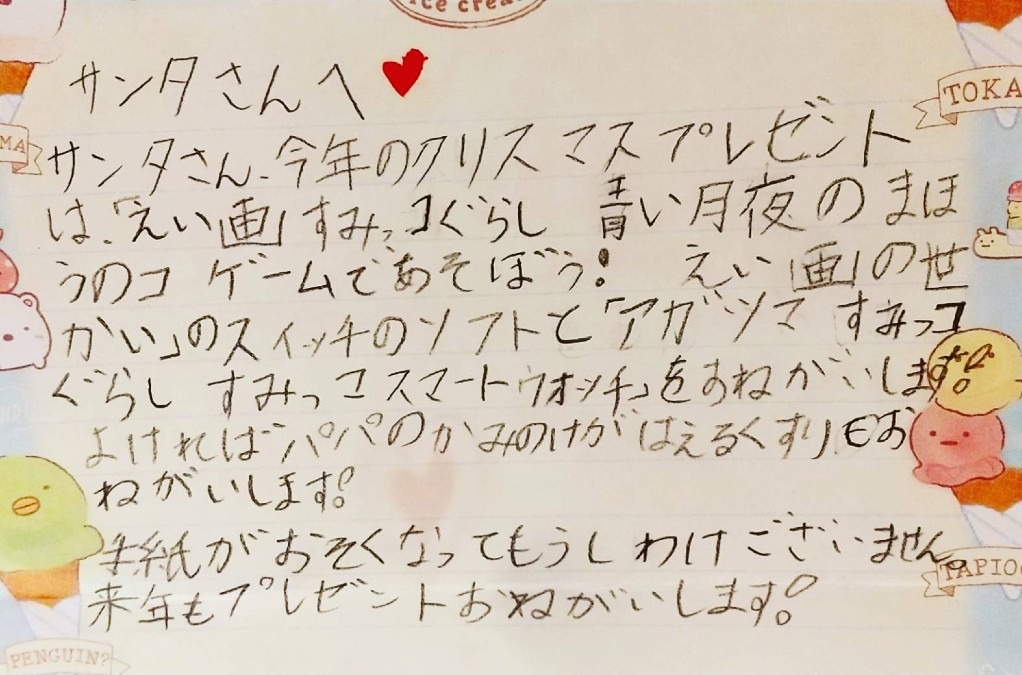 ice crea
サンタさんへ
サンタさん、今年のクリスマスプレゼント
は、「えい画」すみっコぐらし 青い月夜のまほ
うのコ ゲームであそぼう! えい「画」の世
かい」のスイッチのソフトと「アガツマ すみっコ
ぐらし すみっコスマートウォッチ」をおねがいします。
よければパパのかみのけがはえるくすりもお
ねがいします。
手紙がおそくなってもうしわけございません。
来年もプレゼントおねがいします。
TOKA
MA
TAPIO
PENGUIN?